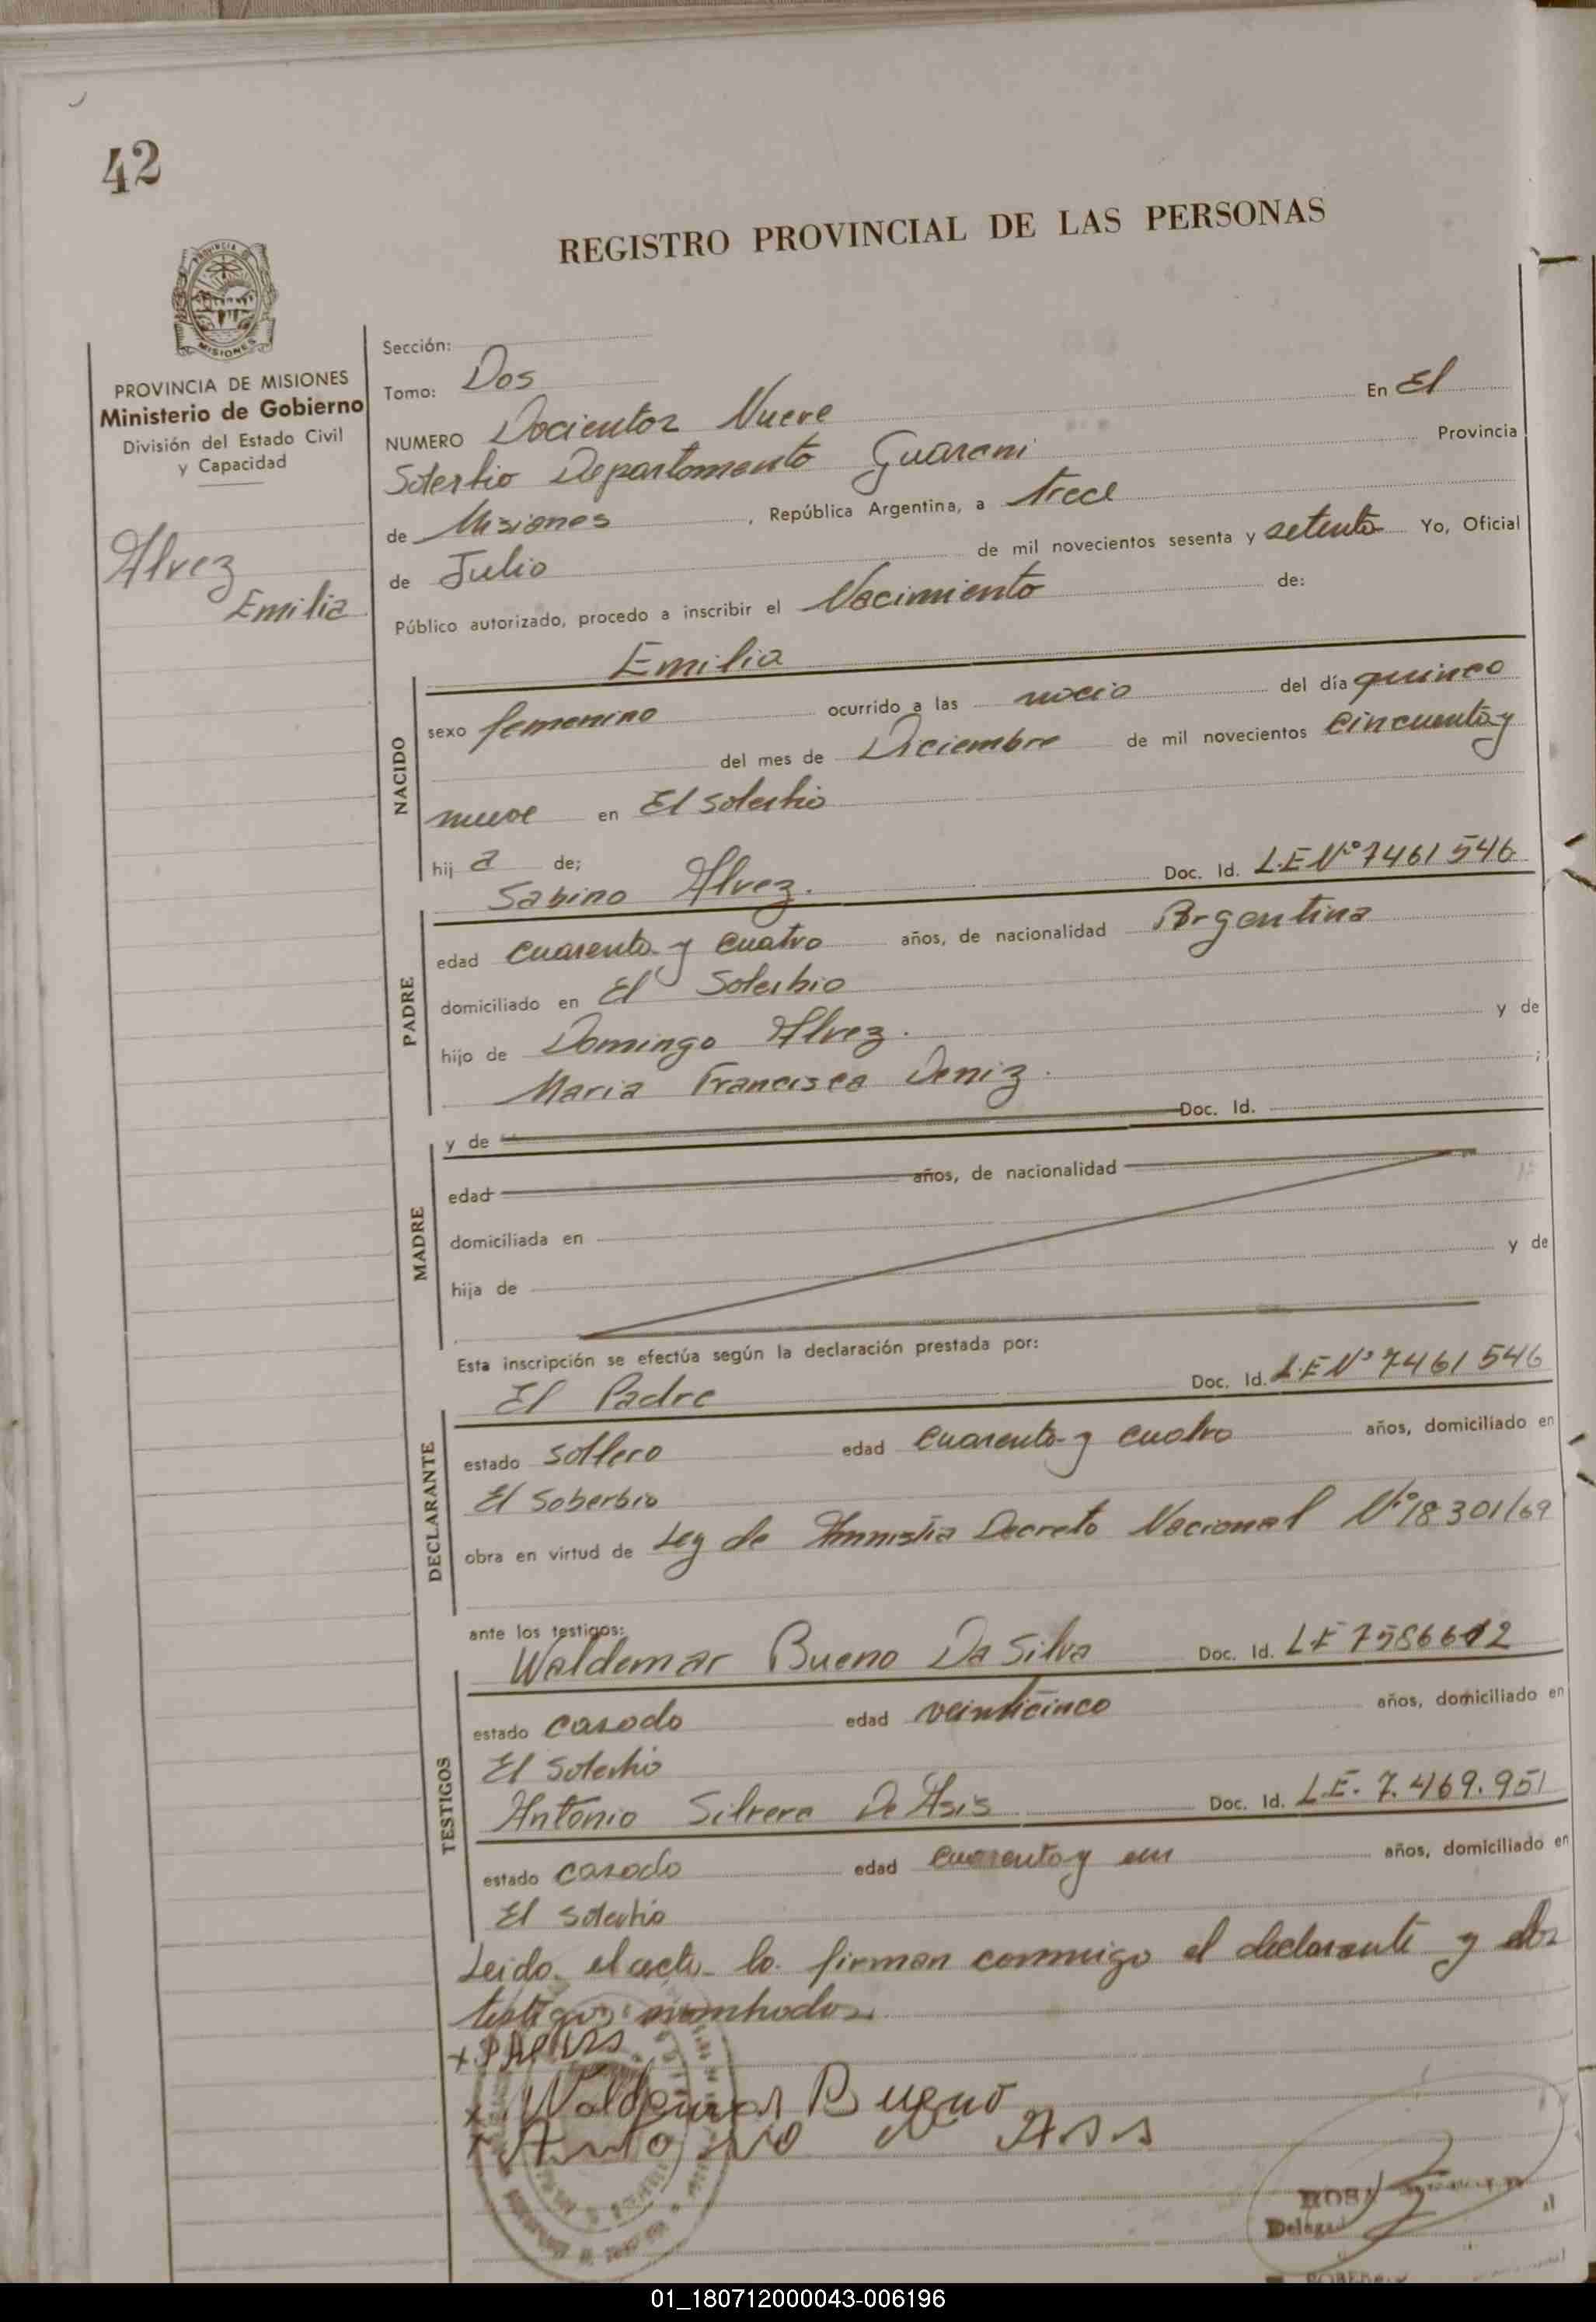 42
REGISTRO PROVINCIAL DE LAS PERSONAS
PROVINCIA
MISIONES
PROVINCIA DE MISIONES
Ministerio de Gobierno
División del Estado Civil
y Capacidad
Alvez
Emilia
Sección:
Tomo: Dos
NUMERO Docientos Nueve En El
Soberbio Departamento Guarani Provincia
de Misiones, República Argentina, a trece
de Julio de mil novecientos sesenta y setenta Yo, Oficial
Público autorizado, procedo a inscribir el Nacimiento de:
Emilia
NACIDO
sexo femenino ocurrido a las del día quince
del mes de Diciembre de mil novecientos cincuenta y
nueve en El Soberbio
hij a de; Doc. Id. L.E Nº 7461546
Sabino Alvez.
PADRE
edad cuarenta y cuatro años, de nacionalidad Argentina
domiciliado en El Soberbio
hijo de Domingo Alvez. y de
Maria Francisca Deniz. ;
MADRE
y de Doc. Id.
edad años, de nacionalidad
domiciliada en
hija de y de
Esta inscripción se efectúa según la declaración prestada por:
El Padre Doc. Id. L.E Nº 7461546
DECLARANTE
estado soltero edad cuarenta y cuatro años, domiciliado en
El Soberbio
obra en virtud de Ley de Amnistia Decreto Nacional Nº 18301/69
ante los testigos:
Waldemar Bueno Da Silva Doc. Id. LE 7586612
TESTIGOS
estado casado edad veinticinco años, domiciliado en
El Soberbio
Antonio Silvera De Asis Doc. Id. L.E. 7.469.951
estado casado edad cuarenta y un años, domiciliado en
El Soberbio
Leido el acta lo firman conmigo el declarante y los
testigos nombrados
Waldemar Bueno
Antonio de Asis
01_180712000043-006196